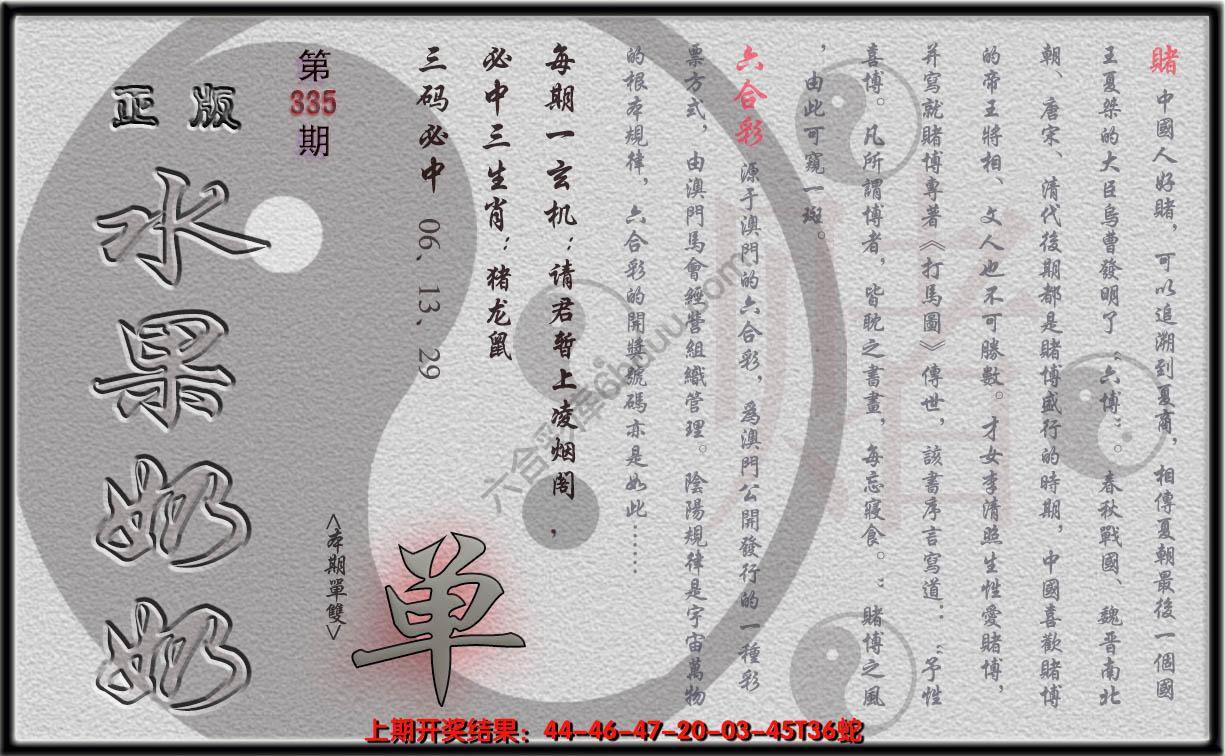 賭 中國人好賭，可以追溯到夏商，相傳夏朝最後一個國
王夏桀的大臣烏曹發明了“六博”。春秋戰國、魏晋南北
朝、唐宋、清代後期都是賭博盛行的時期，中國喜歡賭博
的帝王將相、文人也不可勝數。才女李清照生性愛賭博，
并寫就賭博專著《打馬圖》傳世，該書序言寫道：“予性
喜博。凡所謂博者，皆耽之晝書，每忘寢食。”賭博之風
，由此可窺一斑。
六合彩 源于澳門的六合彩，爲澳門公開發行的一種彩
票方式，由澳門馬會經營組織管理。陰陽規律是宇宙萬物
的根本規律，六合彩的開獎號碼亦是如此……
每期一玄机：请君暂上凌烟阁，
必中三生肖：猪龙鼠
三码必中 06、13、29
第335期
正版
水果奶奶
<本期單雙>
单
賭
六合彩库6huuu.com
上期开奖结果：44-46-47-20-03-45T36蛇